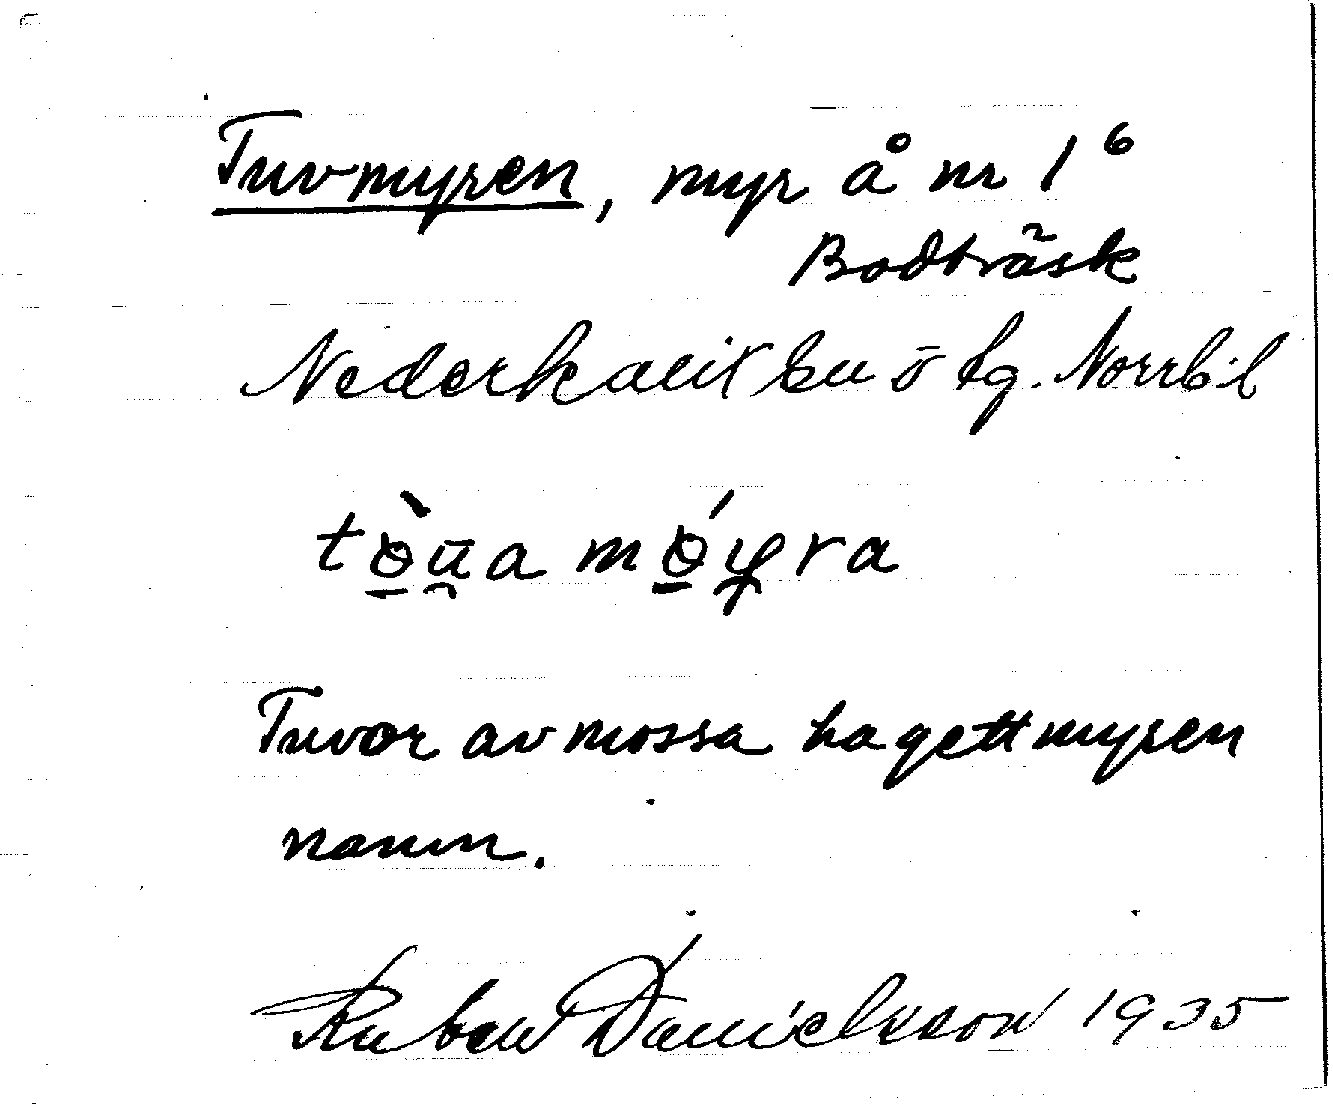 Tuvmyren, myr å nr 1⁶
Bodträsk
Nederkalix sn o tg. Norrb. l
Tuvor av mossa ha gett myren
namn.
Ruben Danielsson 1935